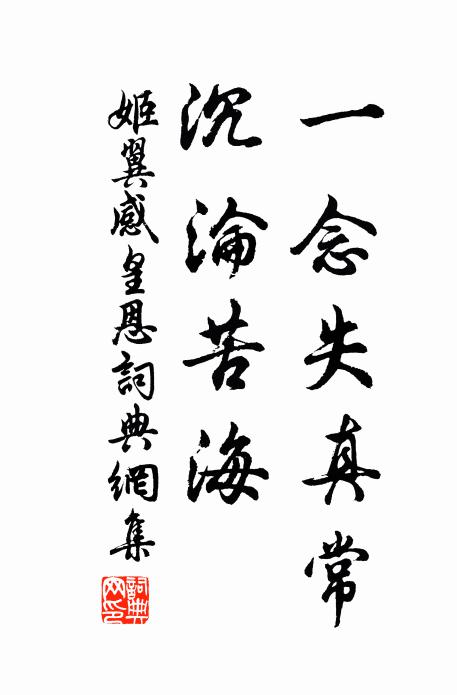 一念失真常
沉淪苦海
姬翼感皇恩詞典網集
詞典
网印